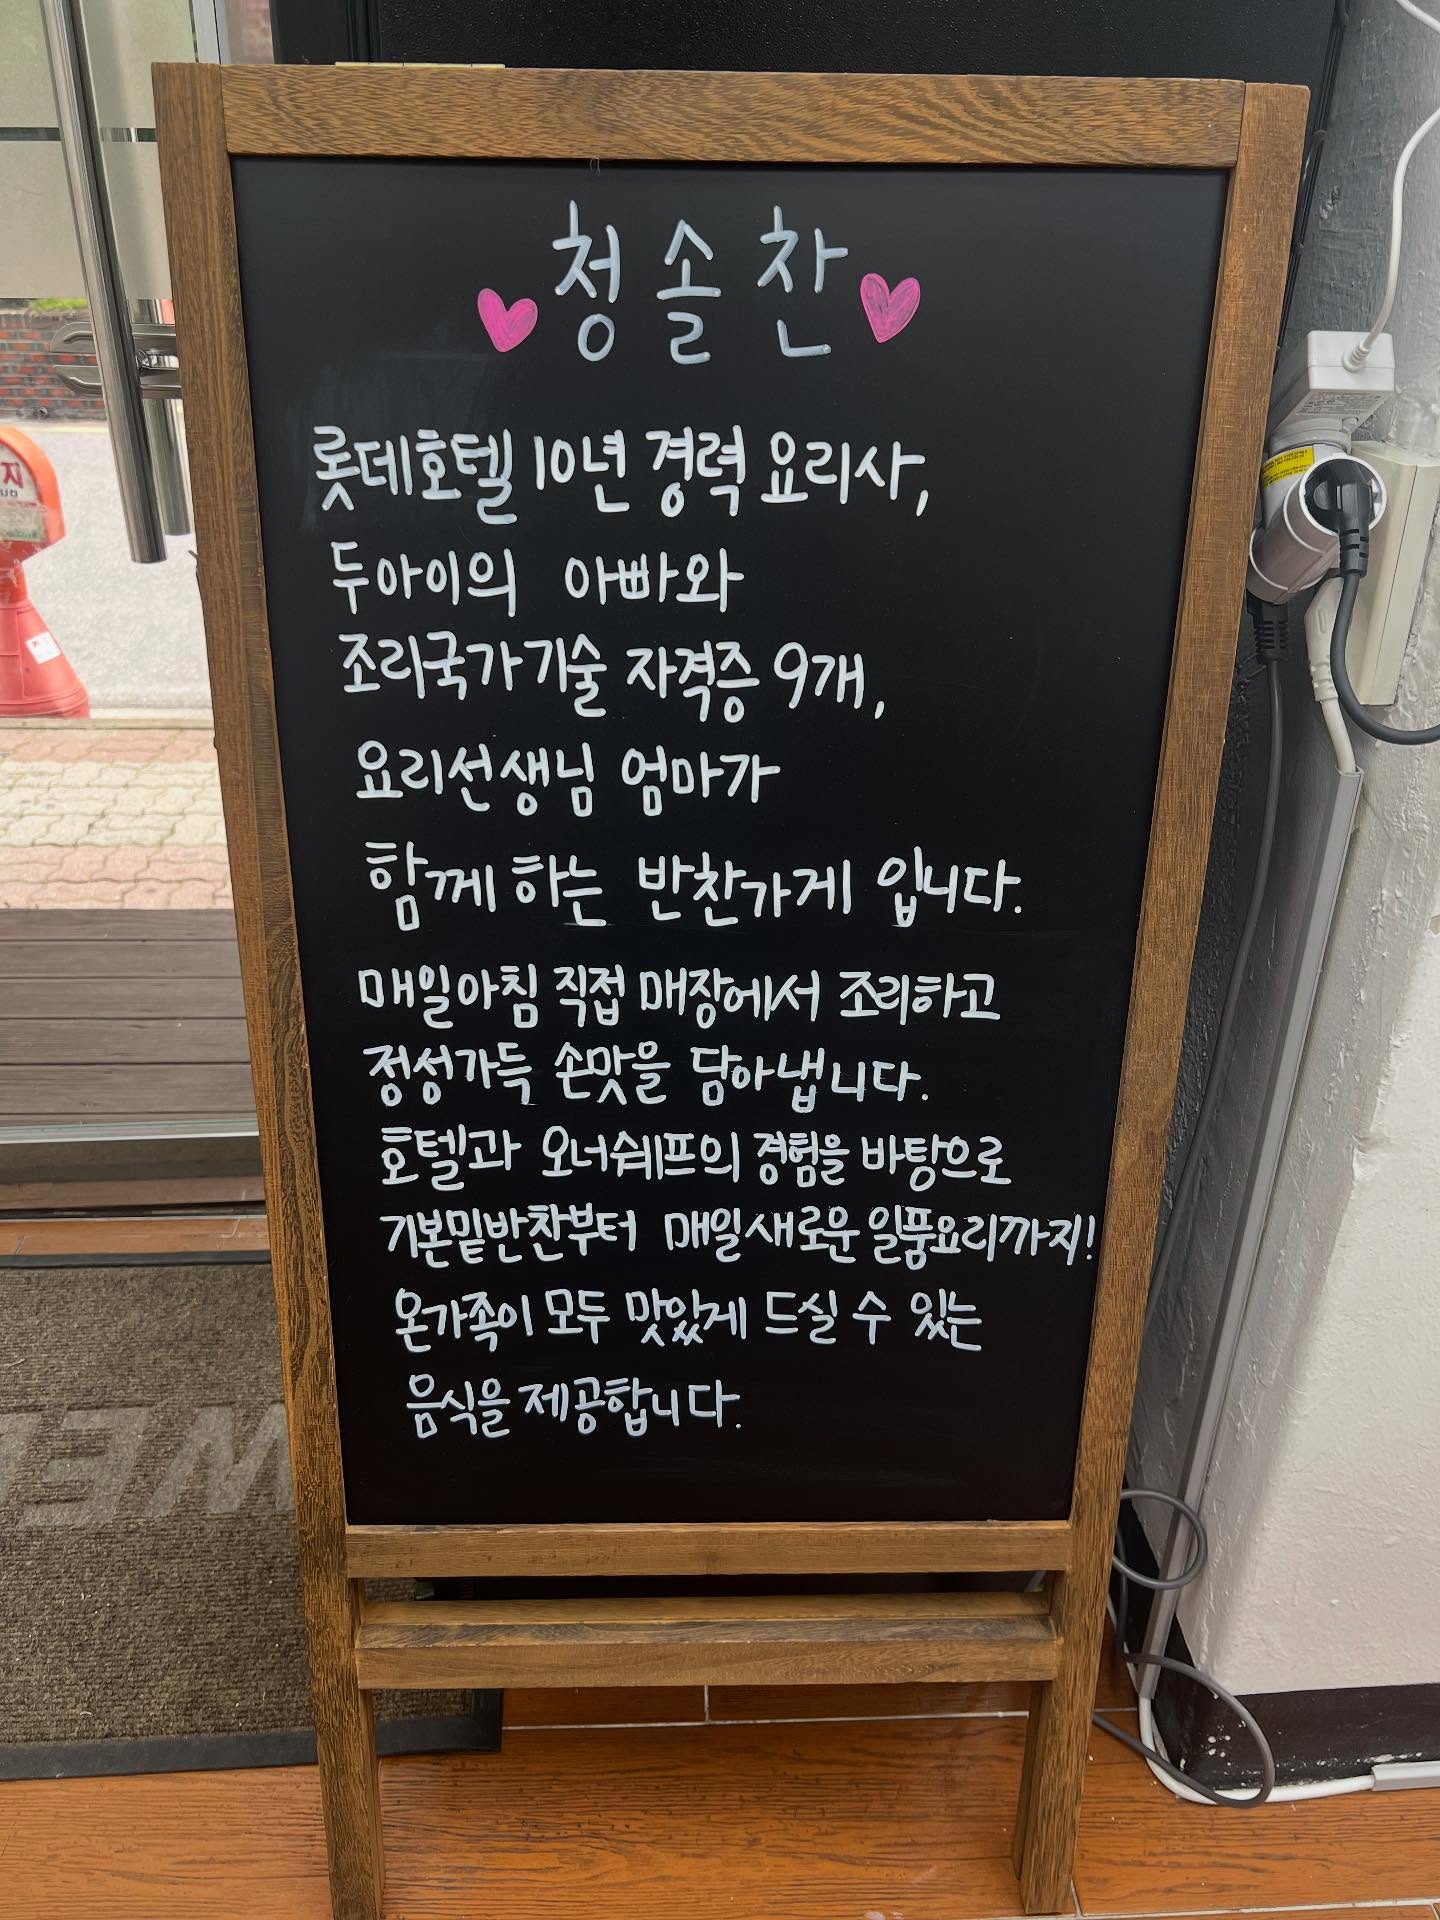 청솔찬
롯데호텔 10년 경력 요리사,
두아이의 아빠와
조리국가기술 자격증 9개,
요리선생님 엄마가
함께 하는 반찬가게 입니다.
매일아침 직접 매장에서 조리하고
정성가득 손맛을 담아냅니다.
호텔과 오너쉐프의 경험을 바탕으로
기본밑반찬부터 매일새로운 일품요리까지!
온가족이 모두 맛있게 드실 수 있는
음식을 제공합니다.
지
WE